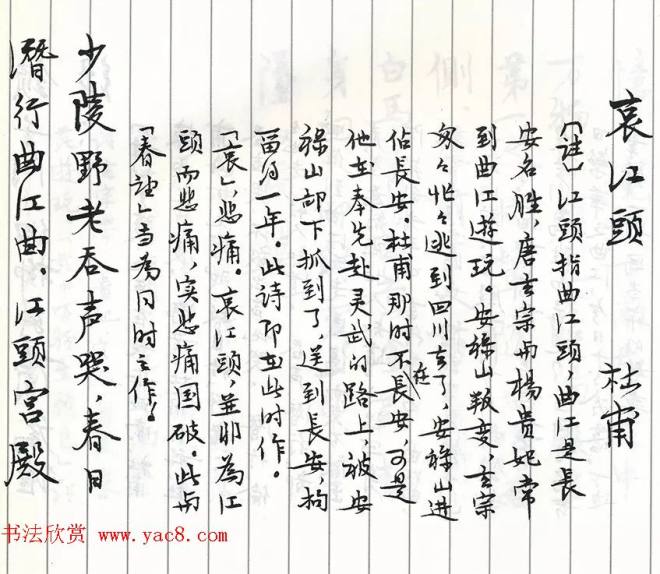 哀江頭 杜甫
「註」江頭指曲江頭，曲江是長
安名胜，唐玄宗与楊貴妃常
到曲江遊玩。安祿山叛变，玄宗
匆々忙々逃到四川去了，安祿山進
佔長安。杜甫那时不在長安，可是
他在奉先赴灵武的路上，被安
祿山部下抓到了，送到長安，拘
留约一年。此詩即在此时作。
「哀」悲痛。哀江頭，並非為江
頭而悲痛，实悲痛国破。此与
「春望」当為同时之作。
少陵野老吞声哭，春日
潛行曲江曲。江頭宮殿
书法欣赏 www.yac8.com